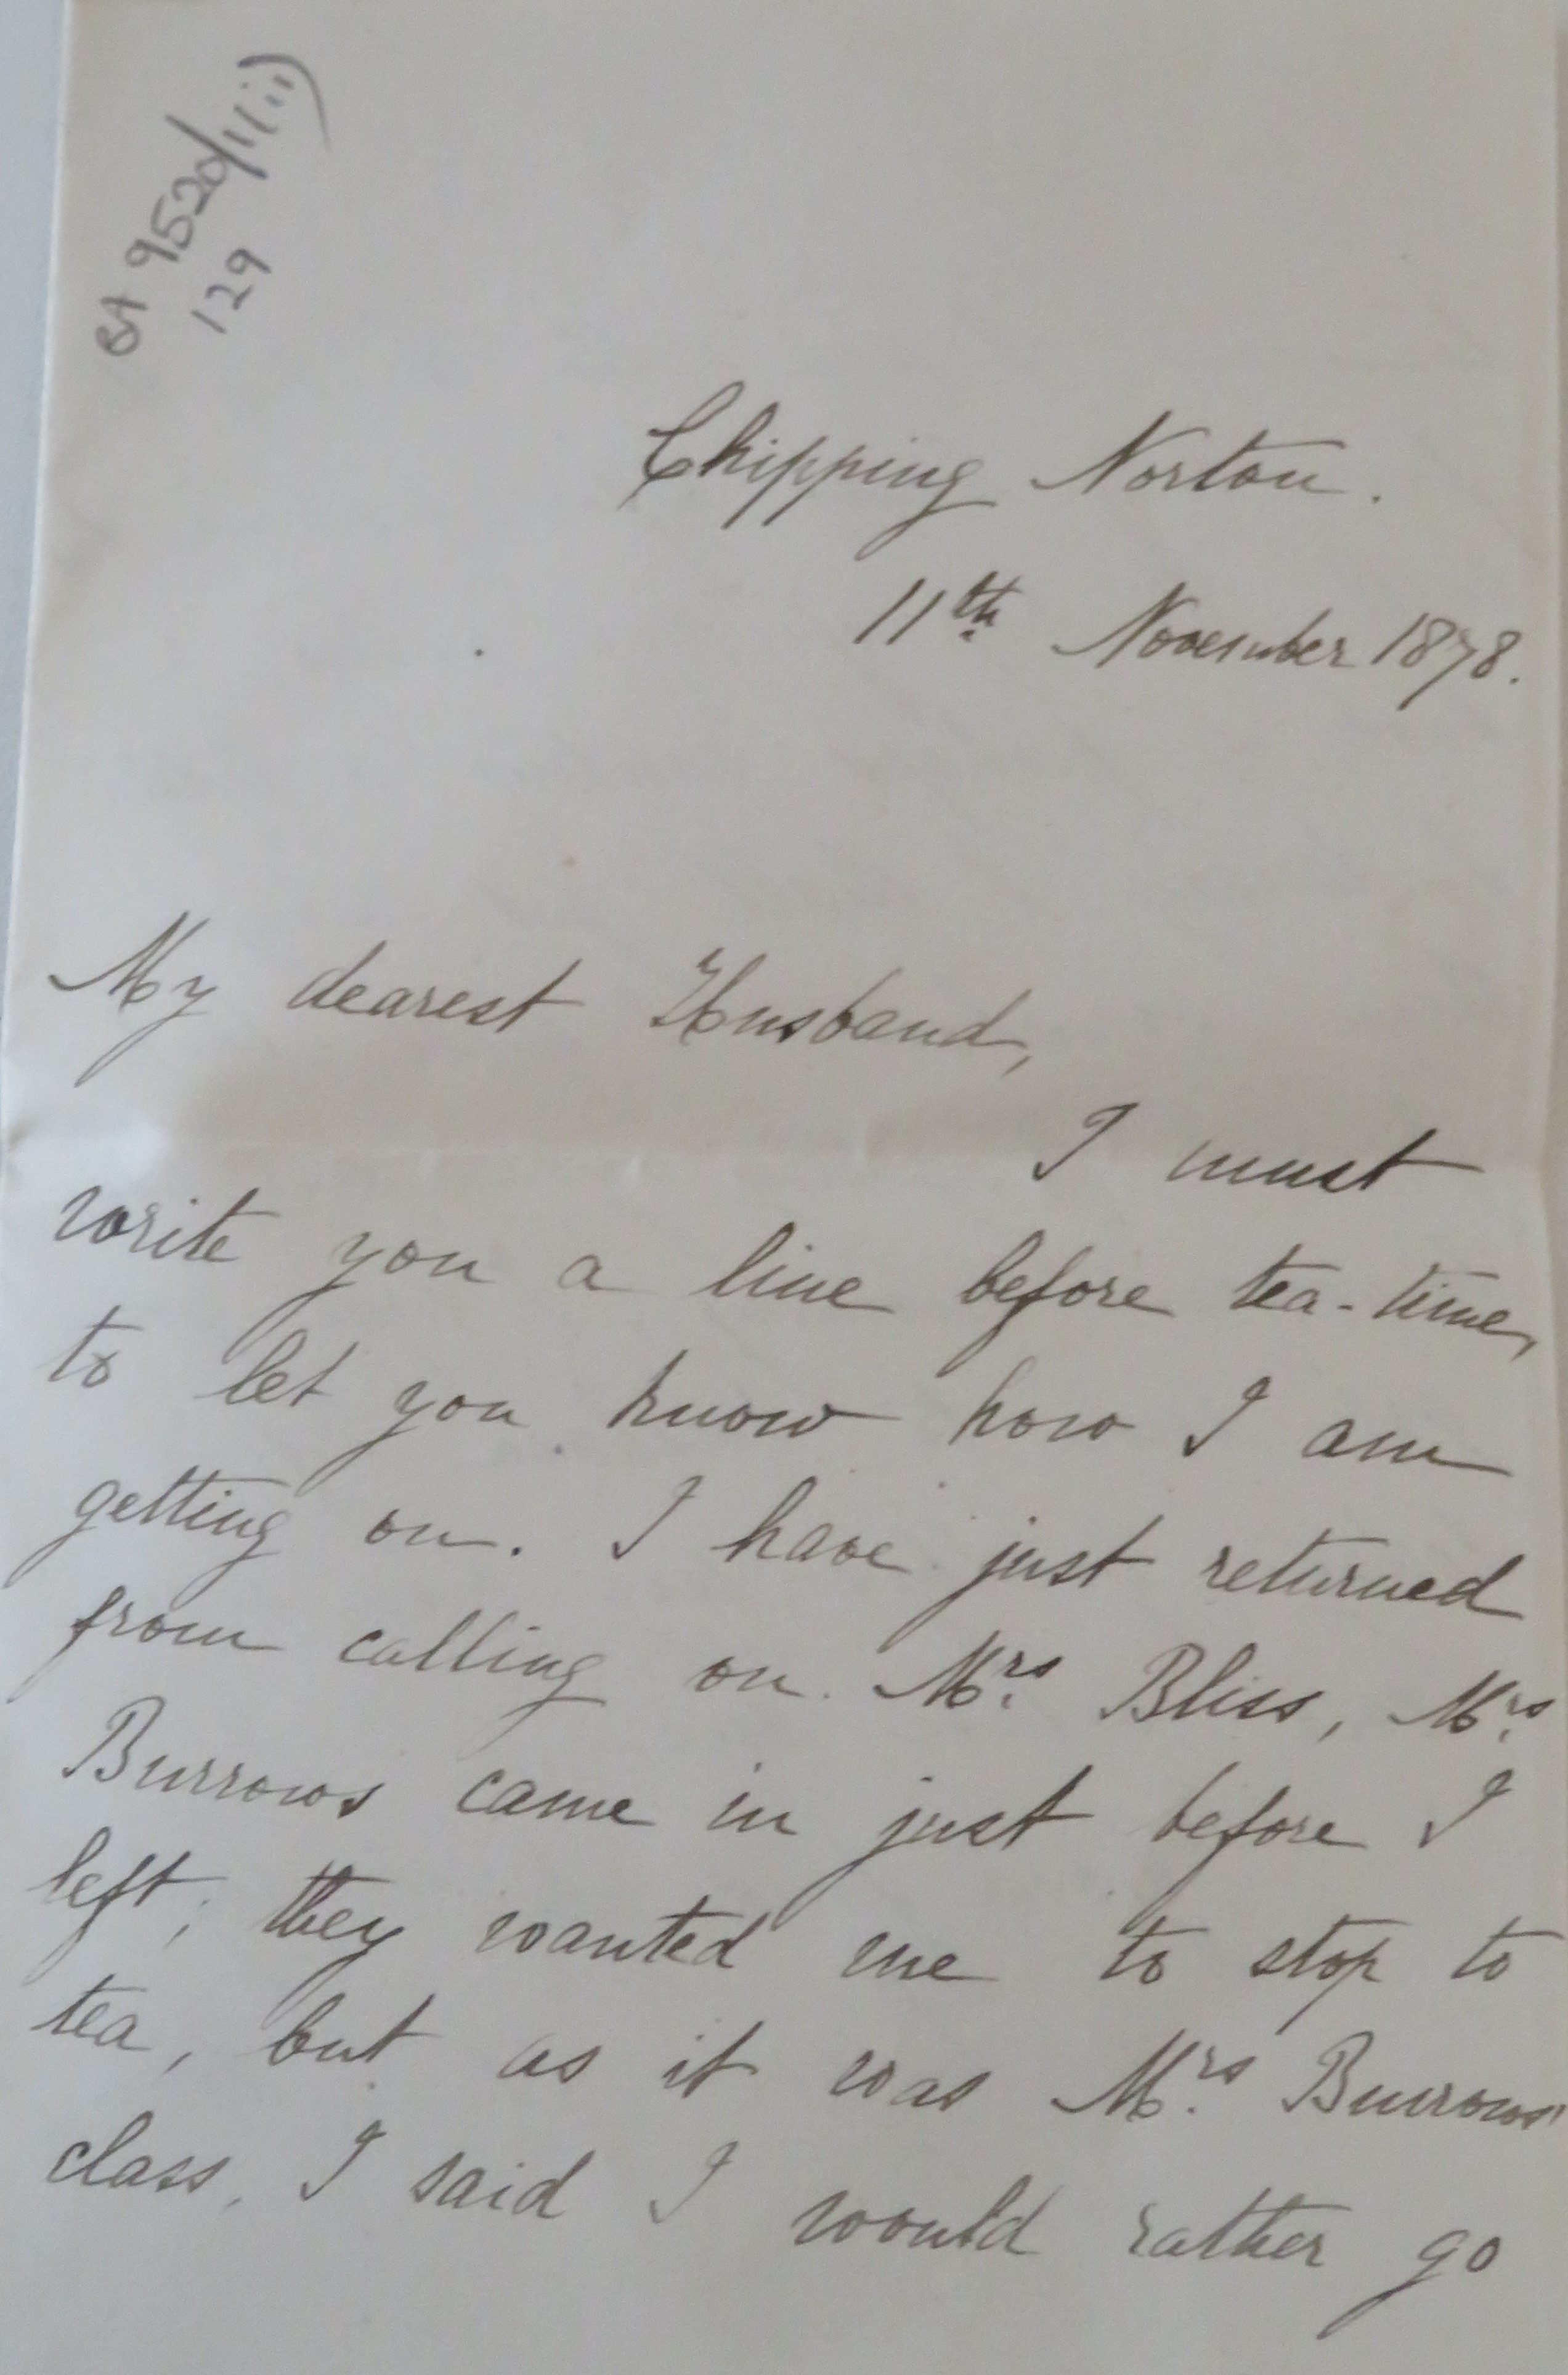 BA 9520/11(ii)
129
Chipping Norton.
11th November 1878.
My dearest Husband,
I must
write you a line before tea-time,
to let you know how I am
getting on. I have just returned
from calling on Mrs. Bliss, Mrs.
Burrows came in just before I
left; they wanted me to stop to
tea, but as it was Mrs. Burrows'
class, I said I would rather go